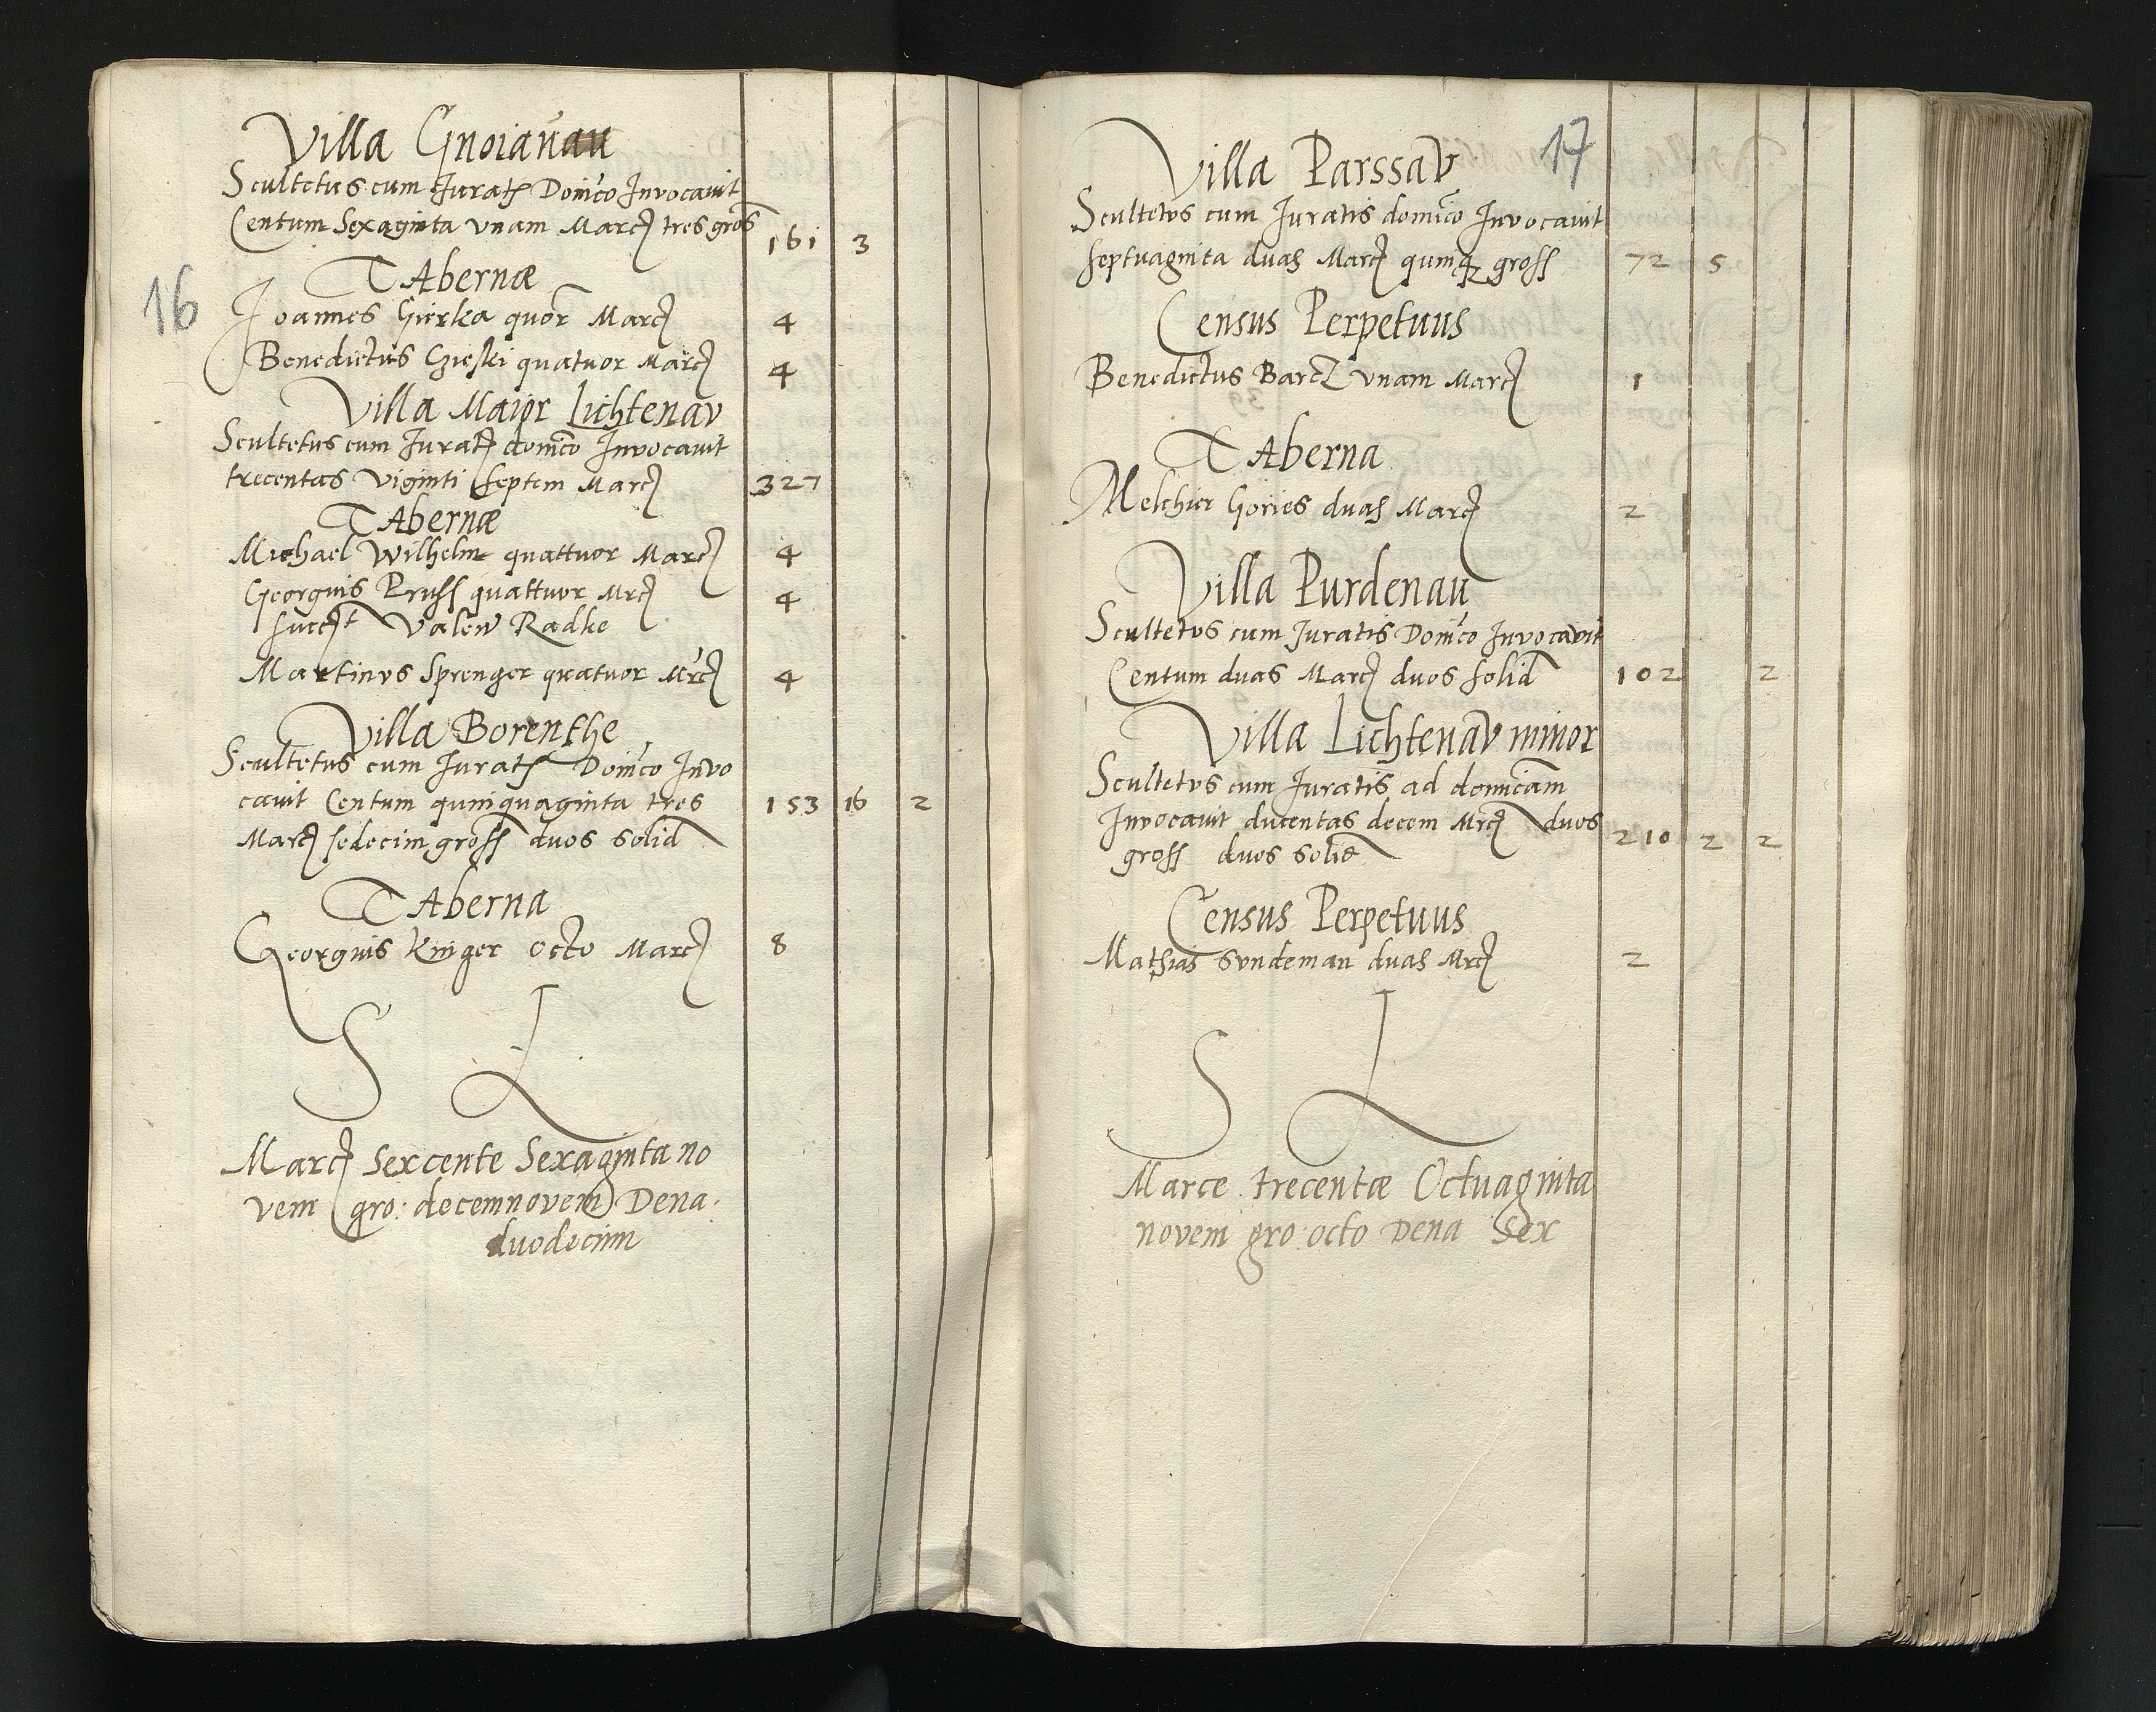 Villa Gnoianau
Scultetus cum Jurat Domco Invocavit
Centum Sexaginta vnam Marc tres gros 161 3
16
TAbernæ
Joannes Gierka quor Marc 4
Benedictus quatuor Marc 4
Villa Maior Lichtenav
Scultetus cum Jurat domco Invocauit
trecentas Viginti septem Marc 327
TAbernæ
Michael Wilhelm quattuor Marc 4
Georgius Pruss quattuor Mrc 4
Valew Radke
Martinvs Sprenger quatuor Mrc 4
Villa Borenthe
Scultetus cum Jurat Domco Invo
cauit Centum quinquaginta tres 153 16 2
Marc sedecim gross duos solid
TAberna
Georgius Kinger octo Marc 8
S L
Marc Sexcente Sexaginta no
vem gro: decemnovem Dena.
duodecim
17
Villa Parssav
Scultetvs cum Juratis domco Invocauit
septuaginta duas Marc quinqz gross 72 5
Census Perpetuus
Benedictus Barcz vnam Marc 1
TAberna
Melchier Gories duas Marc 2
Villa Purdenau
Scultetvs cum Juratis Domco Invocavit
Centum duas Marc duos solid 102 2
Villa Lichtenav minor
Scultetvs cum Juratis ad domicam
Invocauit ducentas decem Mrc duos 210 2 2
gross duos solid
Census Perpetuus
Mathias Svndeman duas Mrc 2
S L
Marce trecentæ Octuaginta
novem gro: octo Dena Sex